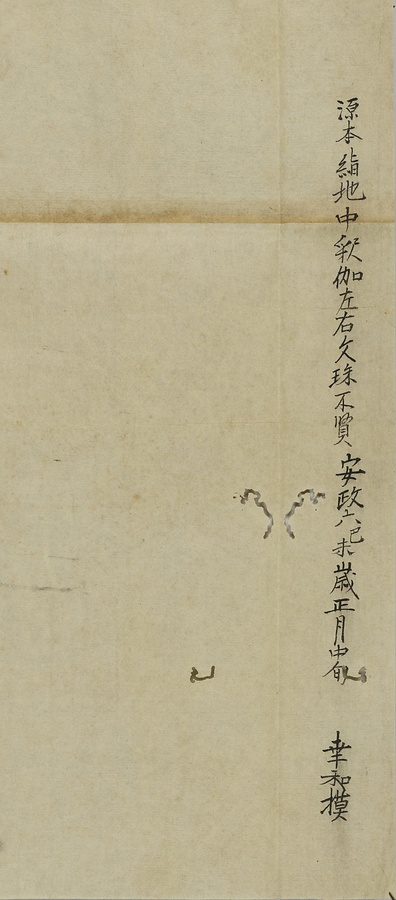 源本絹地中釈伽左右文珠不賢 安政六己未歳正月中旬 幸和摸